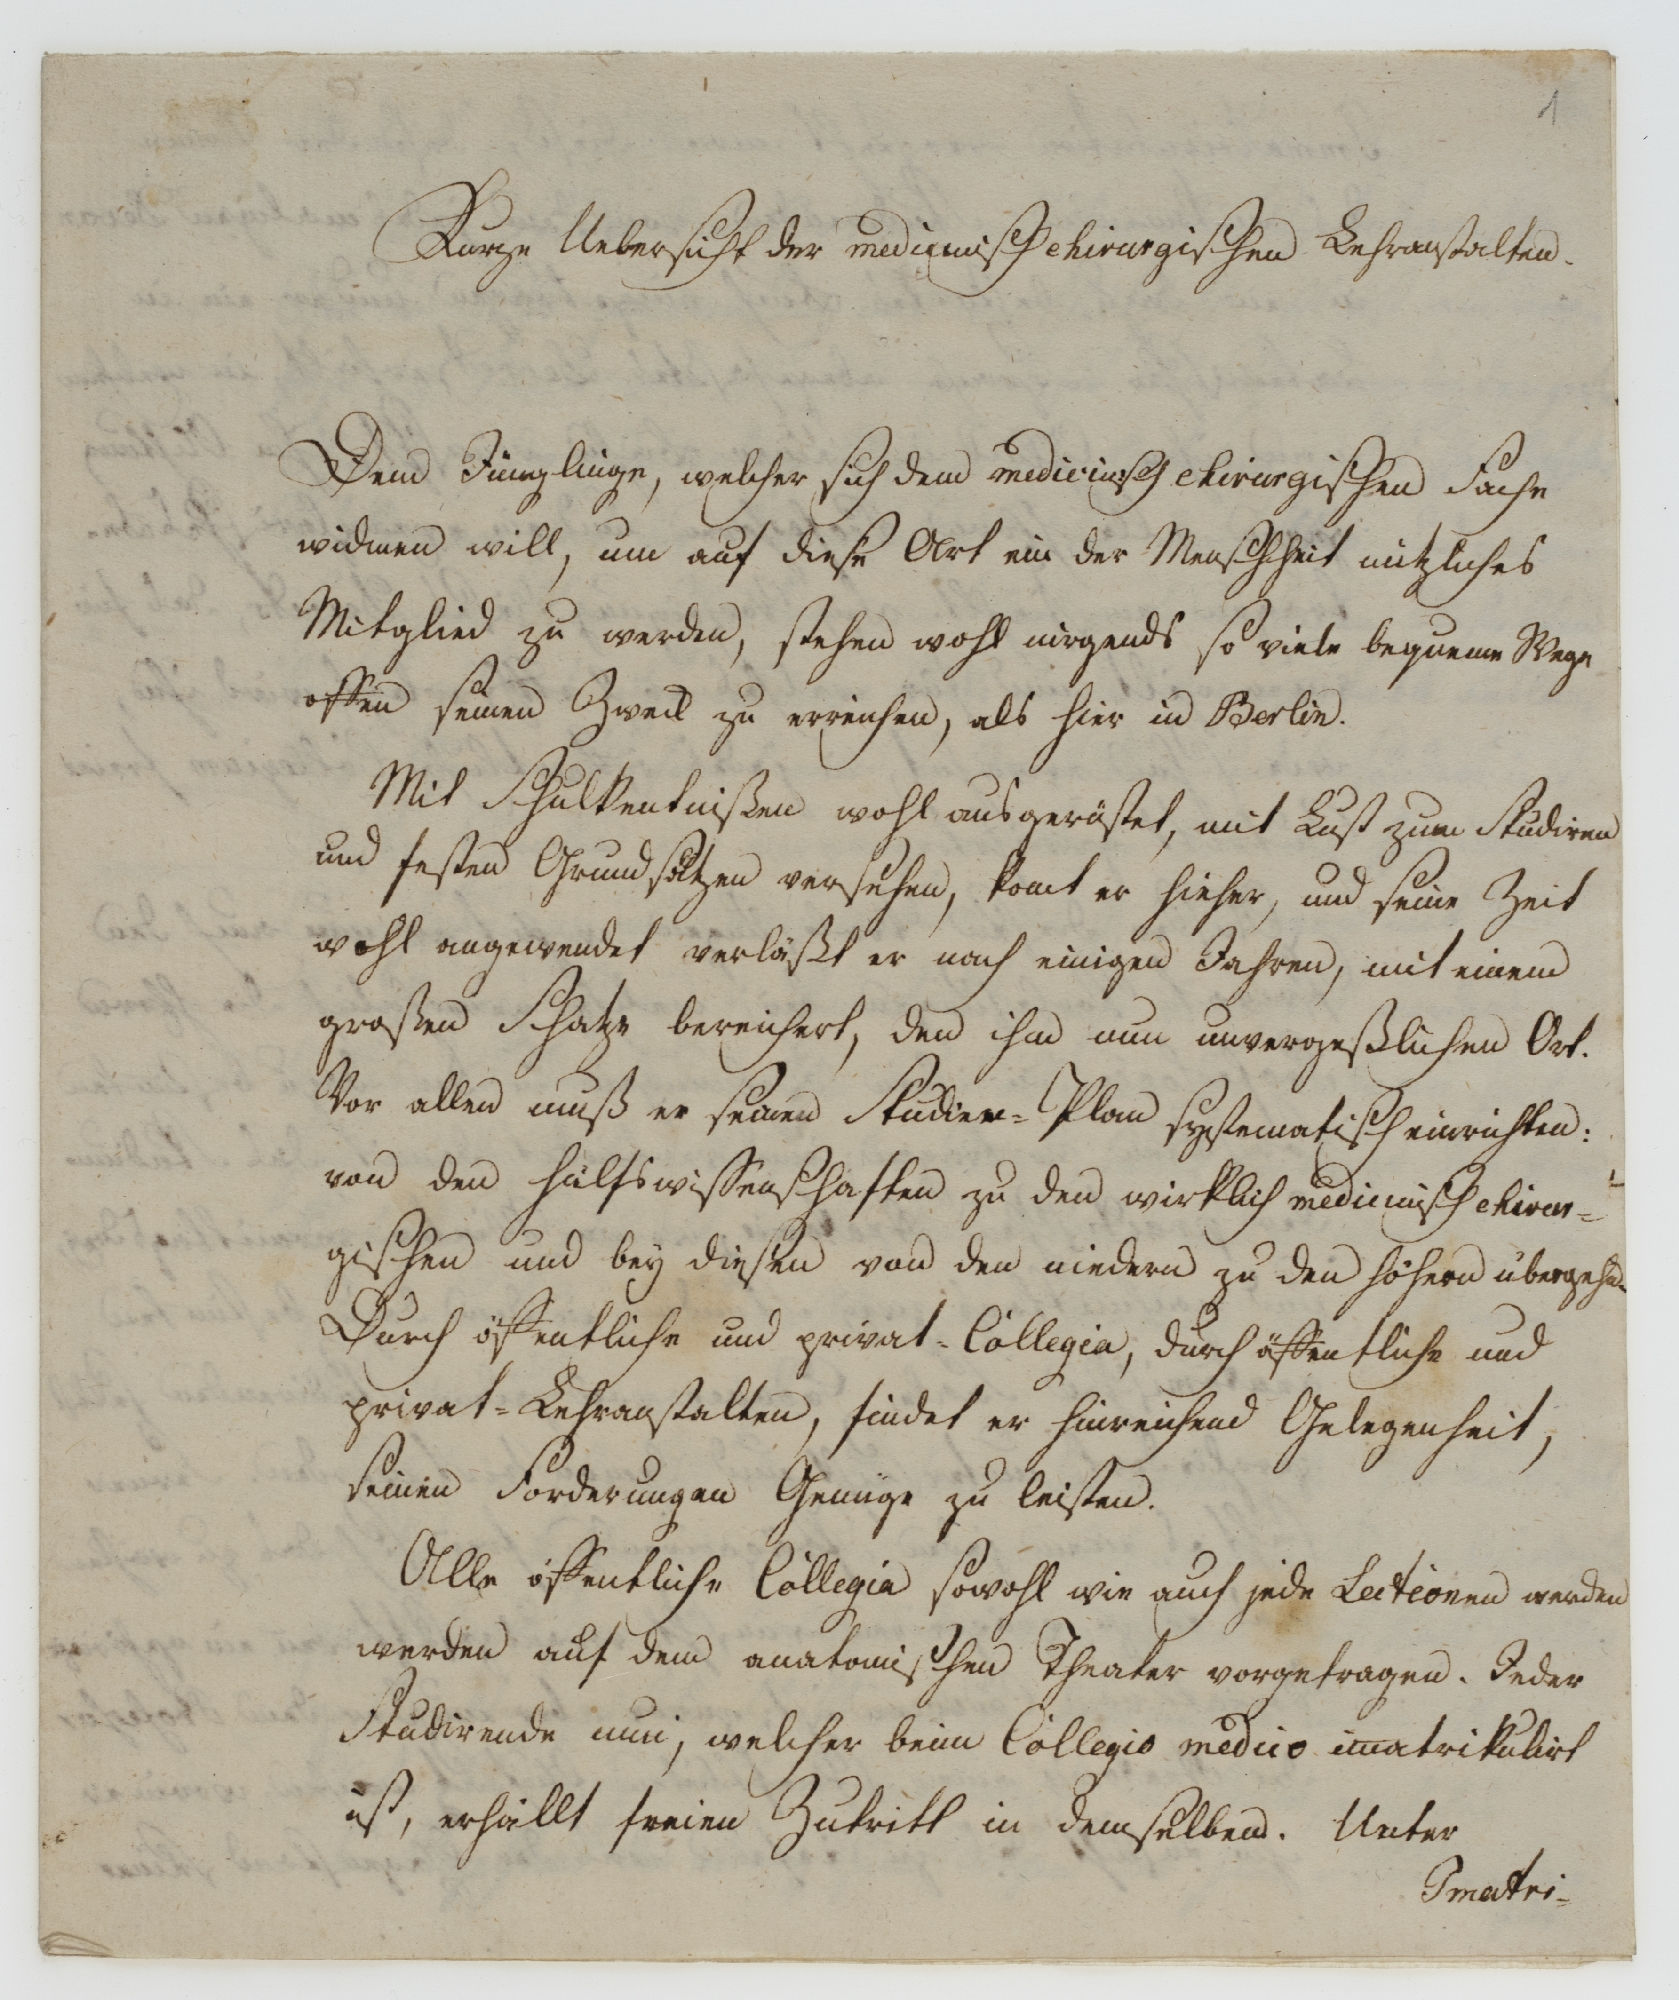 1
Kurze Uebersicht der medicinisch chirurgischen Lehranstalten.
Dem Jünglinge, welcher sich dem medicinisch chirurgischen Fache
widmen will, um auf diese Art ein der Menschheit nützliches
Mitglied zu werden, stehen wohl nirgends so viele bequeme Wege
offen seinen Zweck zu erreichen, als hier in Berlin.
Mit Schulkentnißen wohl ausgerüstet, mit Lust zum Studiren
und festen Grundsätzen versehen, komt er hieher, und seine Zeit
wohl angewendet verläßt er nach einigen Jahren, mit einem
großen Schatze bereichert, den ihm nun unvergeßlichen Ort.
Vor allen muß er seinen Studien-Plan systematisch einrichten:
von den hülfswissenschaften zu den wirklich medicinisch chirur-
gischen und bey diesen von den niedern zu den höhern übergehn.
Durch öffentliche und privat-Collegia, durch öffentliche und
privat-Lehranstalten, findet er hinreichend Gelegenheit,
seinen Forderungen Genüge zu leisten.
Alle öffentliche Collegia sowohl wie auch jede Lectionen werden
werden auf dem anatomischen Theater vorgetragen. Jeder
Studirende nun, welcher beim Collegio medico imatrikulirt
ist, erhällt freien Zutritt in demselben. Unter
Imatri-